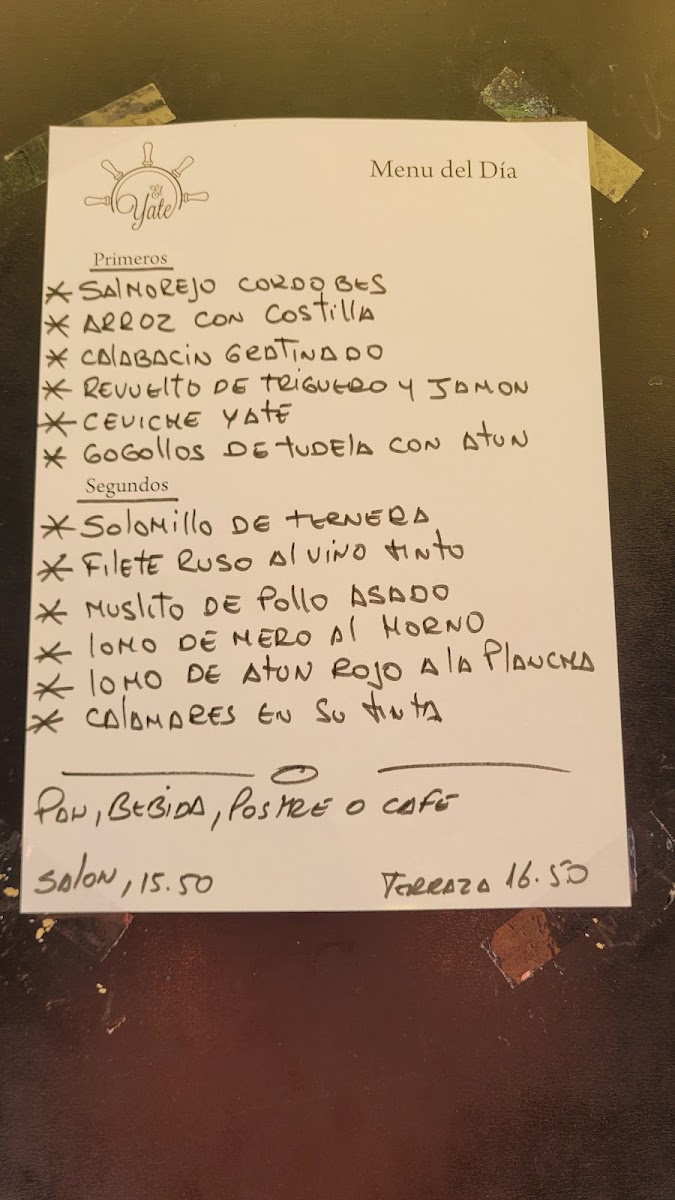 El
Yate
Menu del Día
Primeros
* SALMOREJO CORDOBES
* ARROZ CON COSTILLA
* CALABACIN GRATINADO
* REVUELTO DE TRIGUERO Y JAMON
* CEVICHE YATE
* GOGOLLOS DE TUDELA CON ATUN
Segundos
* SOLOMILLO DE TERNERA
* FILETE RUSO AL VINO TINTO
* MUSLITO DE POLLO ASADO
* LOMO DE MERO AL HORNO
* LOMO DE ATUN ROJO A LA PLANCHA
* CALAMARES EN SU TINTA
PAN, BEBIDA, POSTRE O CAFÉ
SALON, 15.50 TERRAZA 16.50